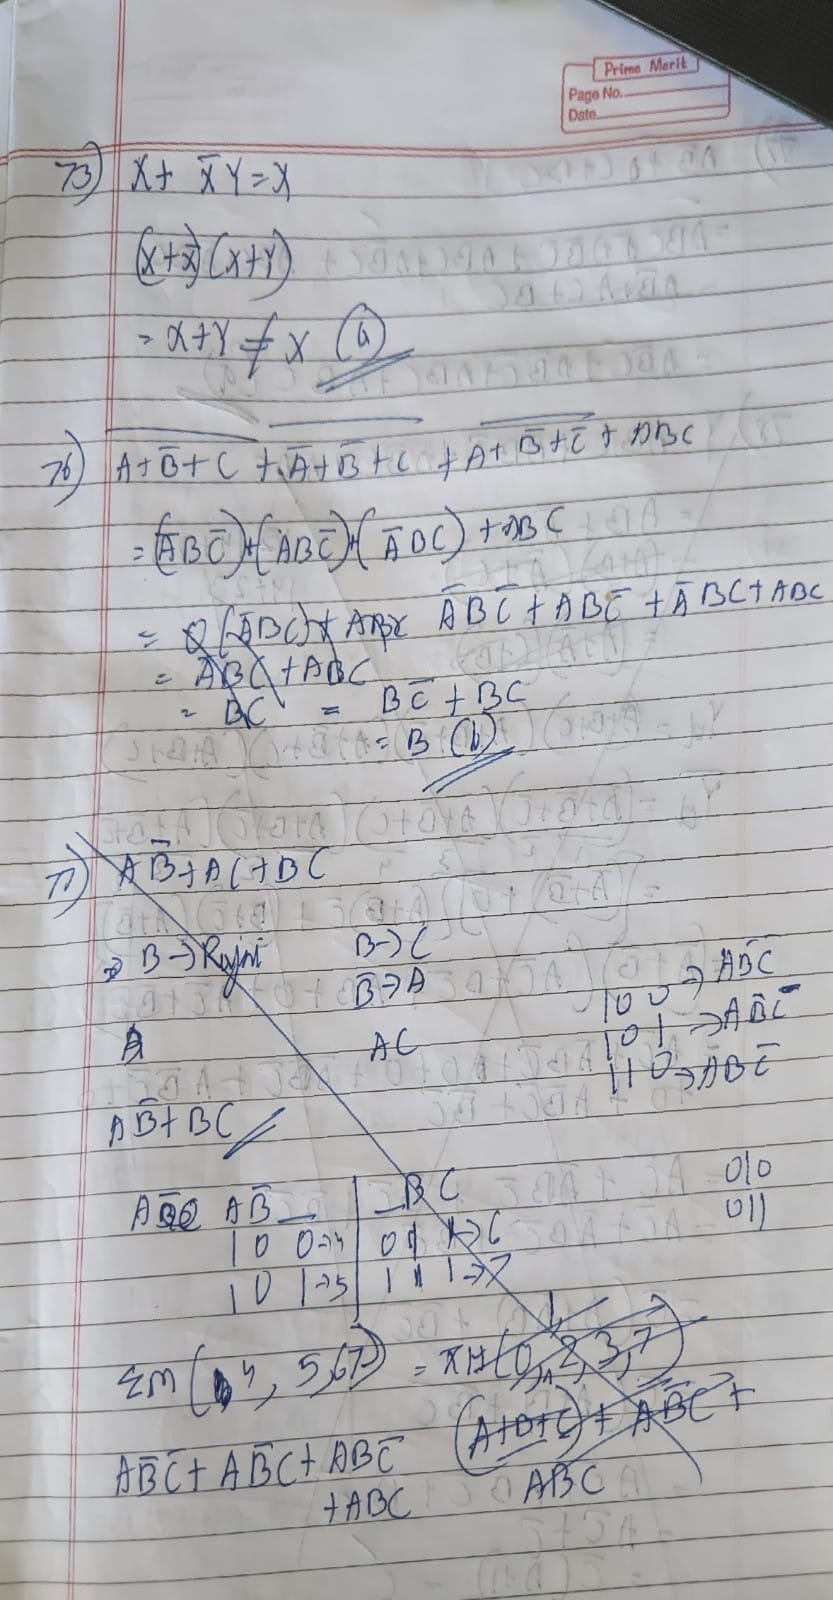 Prime Merit
Page No.
Date.
73) X + X̅Y = X
(X+X̅)(X+Y)
= X+Y ≠ X (a)
76) \overline{A+B̅+C} + \overline{A̅+B̅+C} + \overline{A+B̅+C̅} + ABC
= (A̅BC̅)+(ABC̅)+(A̅BC) + ABC
= A̅BC̅ + ABC̅ + A̅BC + ABC
= A̅BC + ABC
= BC = BC̅ + BC
= B (b)
77) AB̅ + AC + BC
→ B → Right B → C
B̅ → A
A AC
1 0 0 → AB̅C̅
1 0 1 → AB̅C
1 1 0 → ABC̅
AB̅ + BC
AB̅ _ | _ B C
1 0 0→4 | 0 1 1→6
1 0 1→5 | 1 1 1→7
010
011
ΣM(4, 5, 6, 7) = πM(0, 1, 2, 3, 7)
(A+B+C) + AB̅C +
ABC
AB̅C̅ + AB̅C + ABC̅
+ ABC